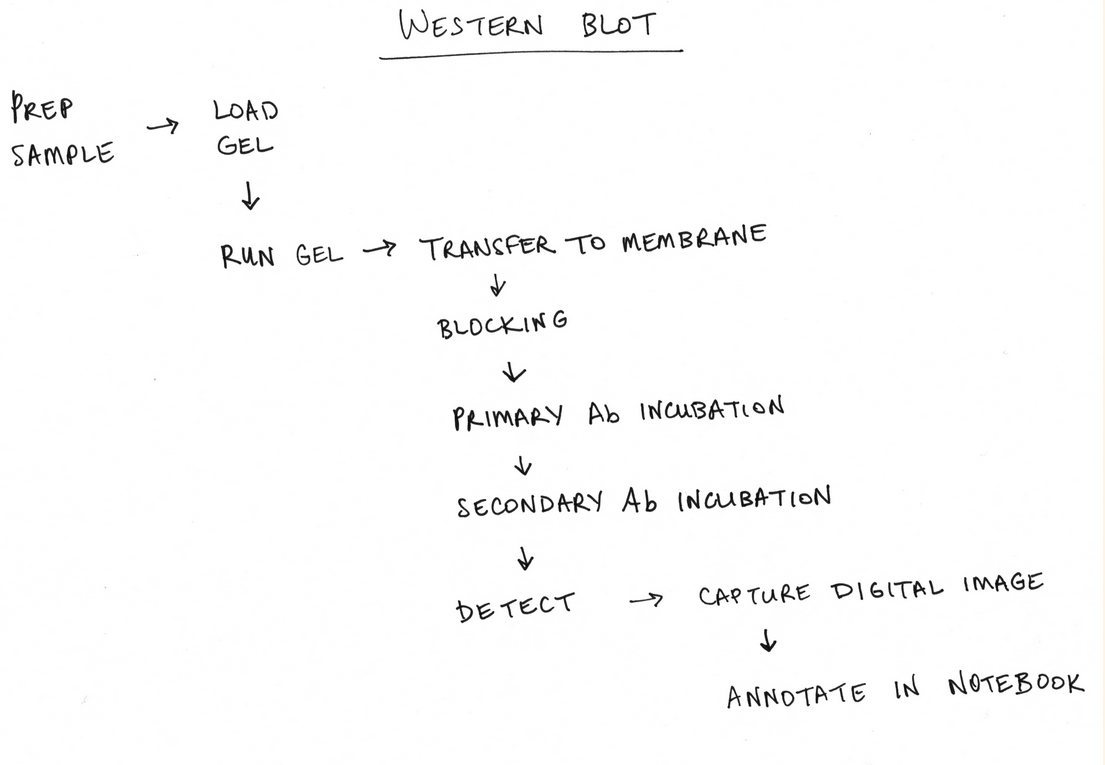 WESTERN BLOT
PREP
SAMPLE
→ LOAD
GEL
↓
RUN GEL → TRANSFER TO MEMBRANE
↓
BLOCKING
↓
PRIMARY Ab INCUBATION
↓
SECONDARY Ab INCUBATION
↓
DETECT → CAPTURE DIGITAL IMAGE
↓
ANNOTATE IN NOTEBOOK